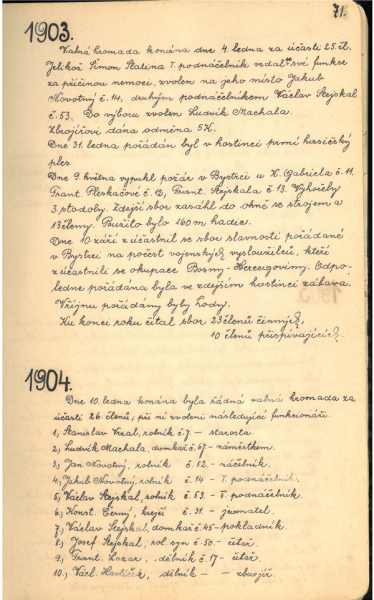 71.
1903.
Valná hromada konána dne 4. ledna za účasti 25. čl.
Jelikož Šimon Slatina I. podnáčelník vzdal se své funkce
za příčinou nemoci, zvolen na jeho místo Jakub
Novotný č. 14, druhým podnáčelníkem Václav Stejskal
č. 53. Do výboru zvolen Ludvík Machala.
Zbrojířovi dána odměna 5K.
Dne 31. ledna pořádán byl v hostinci první hasičský
ples.
Dne 9. května vypukl požár v Bystrci u K. Gabriela č. 11,
Frant. Pleskačové č. 12, Frant. Stejskala č. 13. Vyhořely
3 stodoly. Zdejší sbor zasáhl do ohně se strojem a
13 členy. Použito bylo 160 m hadic.
Dne 10 září zúčastnil se sbor slavnosti pořádané
v Bystrci na počest vojenských vysloužilců, kteří
zúčastnili se okupace Bosny-Hercegoviny. Odpo-
ledne pořádána byla ve zdejším hostinci zábava.
V říjnu pořádány byly hody.
Ku konci roku čítal sbor 23 členů činných,
10 členů přispívajících.
1904.
Dne 10. ledna konána byla řádná valná hromada za
účasti 26. členů, při ní zvoleni následující funkcionáři.
1, Stanislav Vrzal, rolník č. 7 – starosta
2, Ludvík Machala, domkař č. 67. – náměstkem.
3, Jan Novotný, rolník č. 52. – náčelník.
4, Jakub Novotný, rolník č. 14 – I. podnáčelník.
5, Václav Stejskal, rolník č. 53. – II. podnáčelník.
6, Konst. Černý, krejčí č. 31. – jednatel.
7, Václav Stejskal, domkař č. 45 – pokladník.
8, Josef Stejskal, rol. syn č. 50. – četař.
9, Frant. Lazar, dělník č. 17 – četař.
10, Václ. Havlíček, dělník – – zbrojíř.